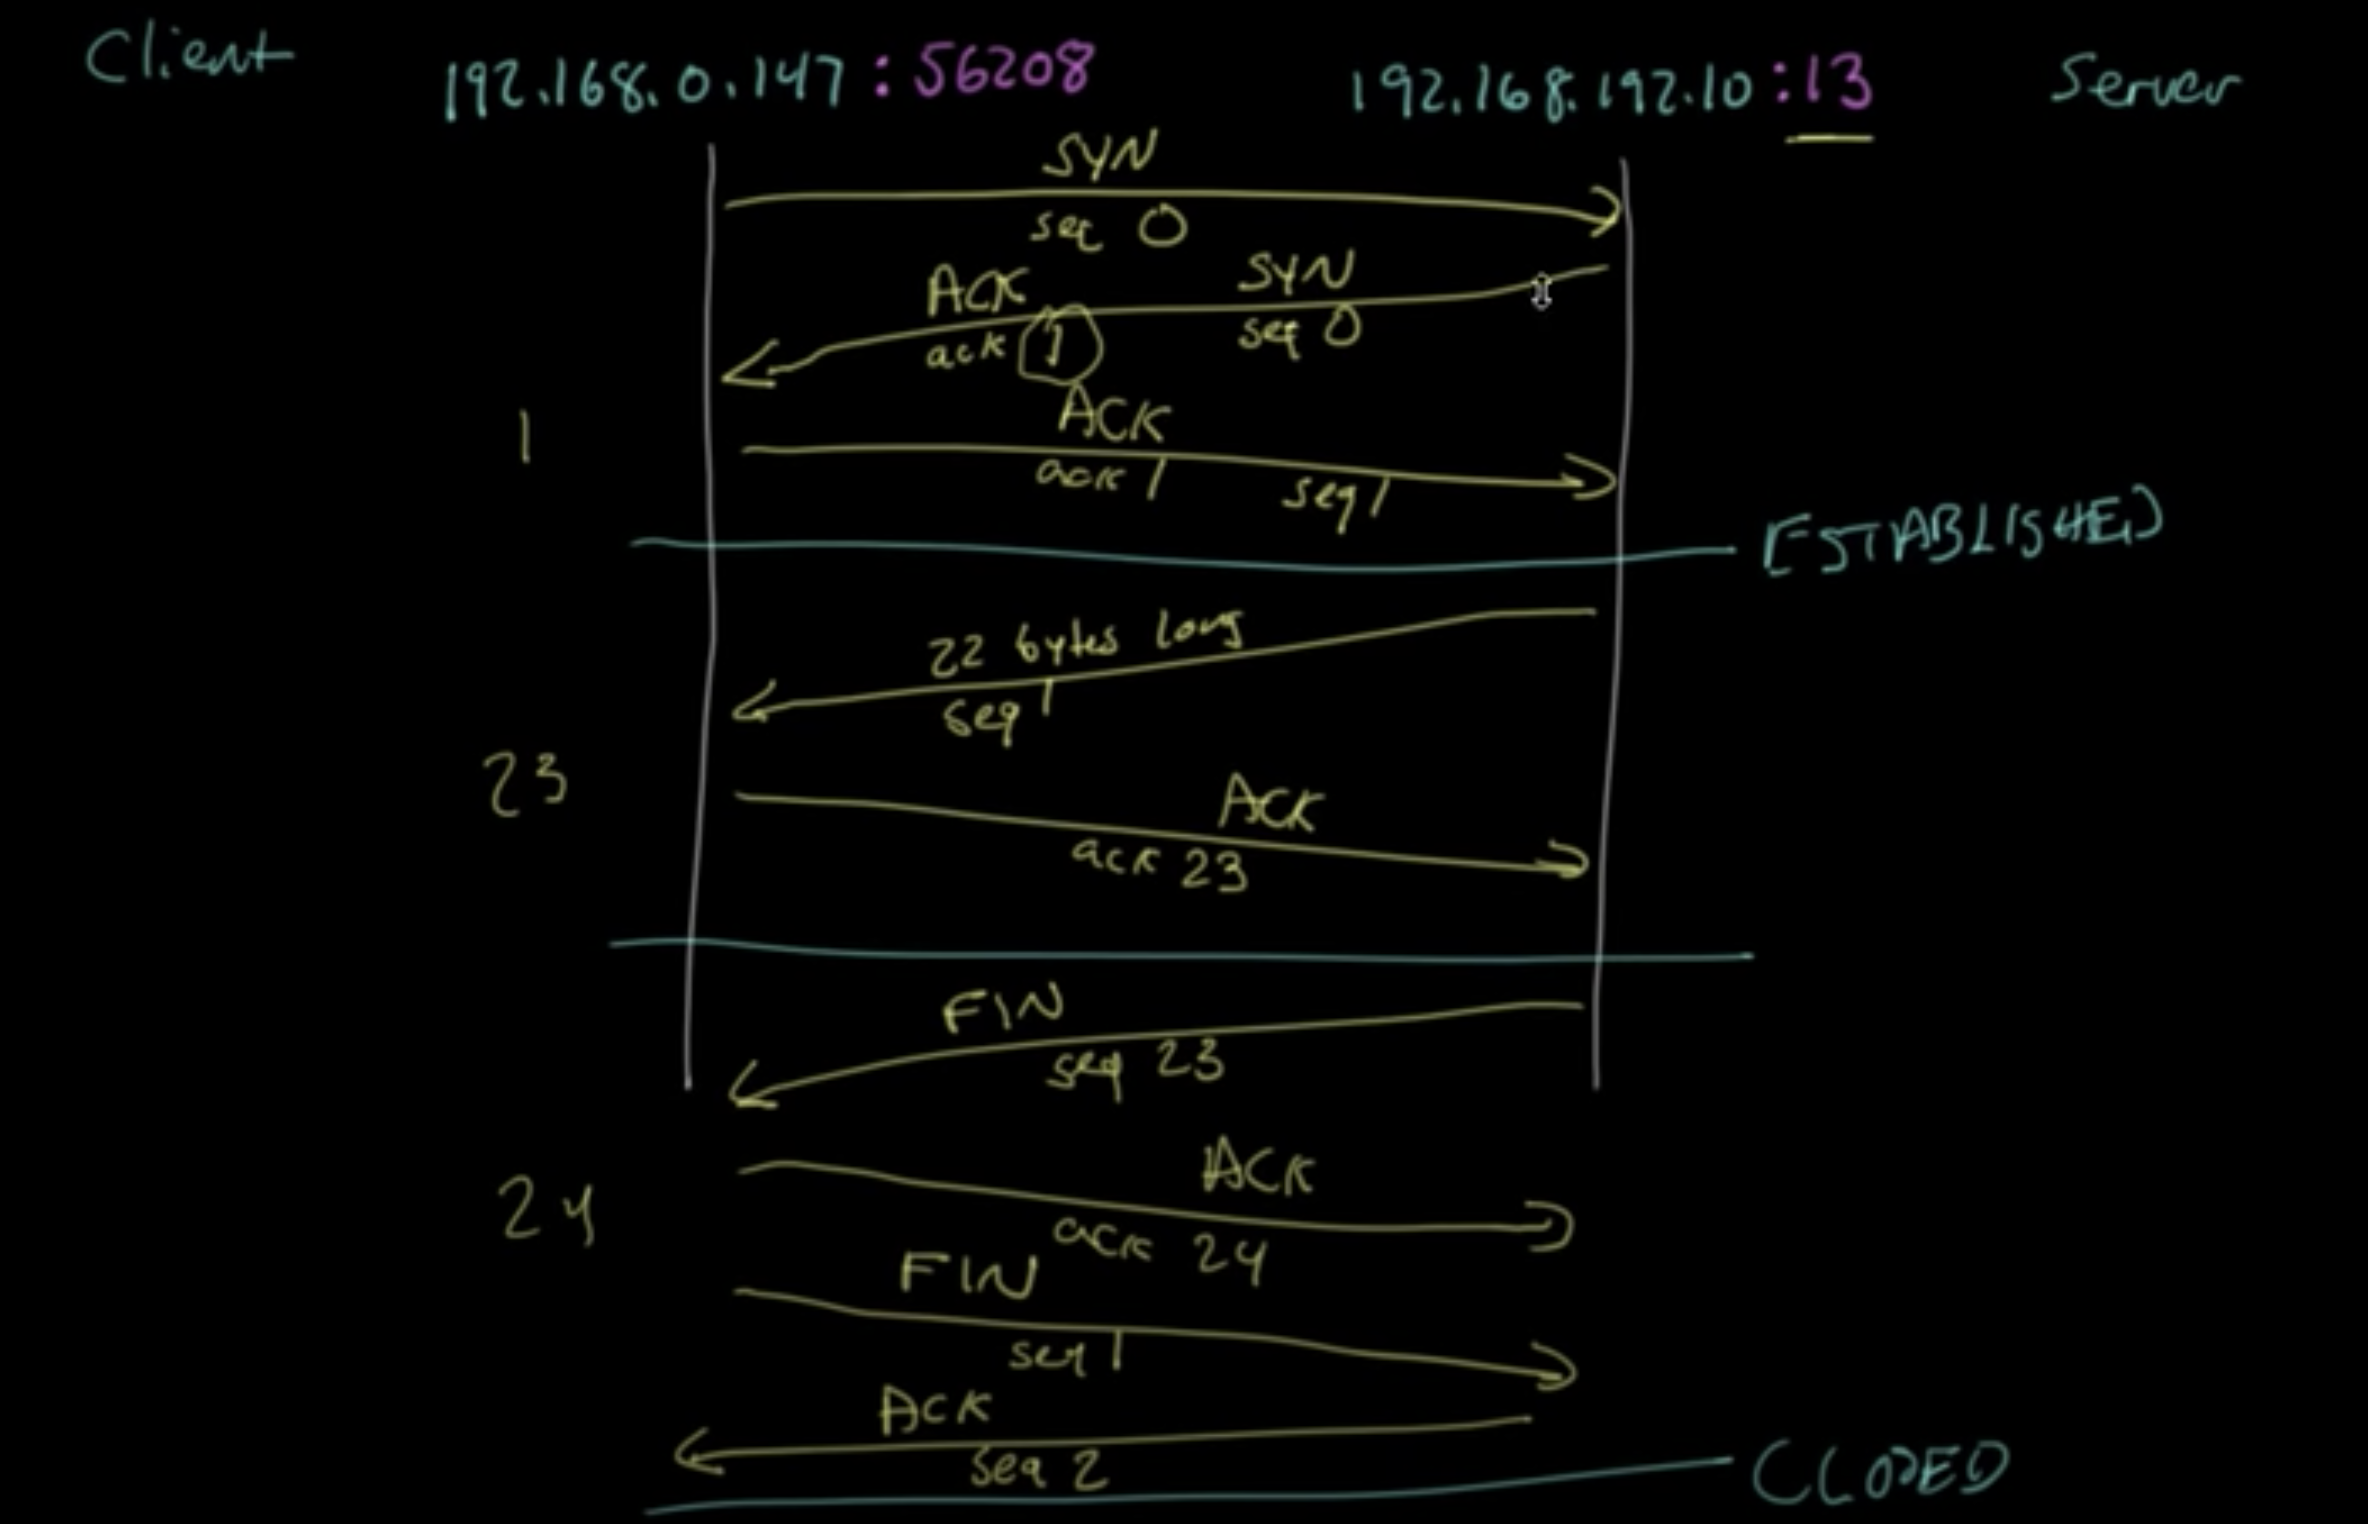 Client 192.168.0.147:56208 192.168.192.10:13 Server
SYN
seq 0
ACK SYN
ack 1 seq 0
1 ACK
ack 1 seq 1
ESTABLISHED
22 bytes long
seq 1
23 ACK
ack 23
FIN
seq 23
24 ACK
ack 24
FIN
seq 1
ACK
seq 2
CLOSED